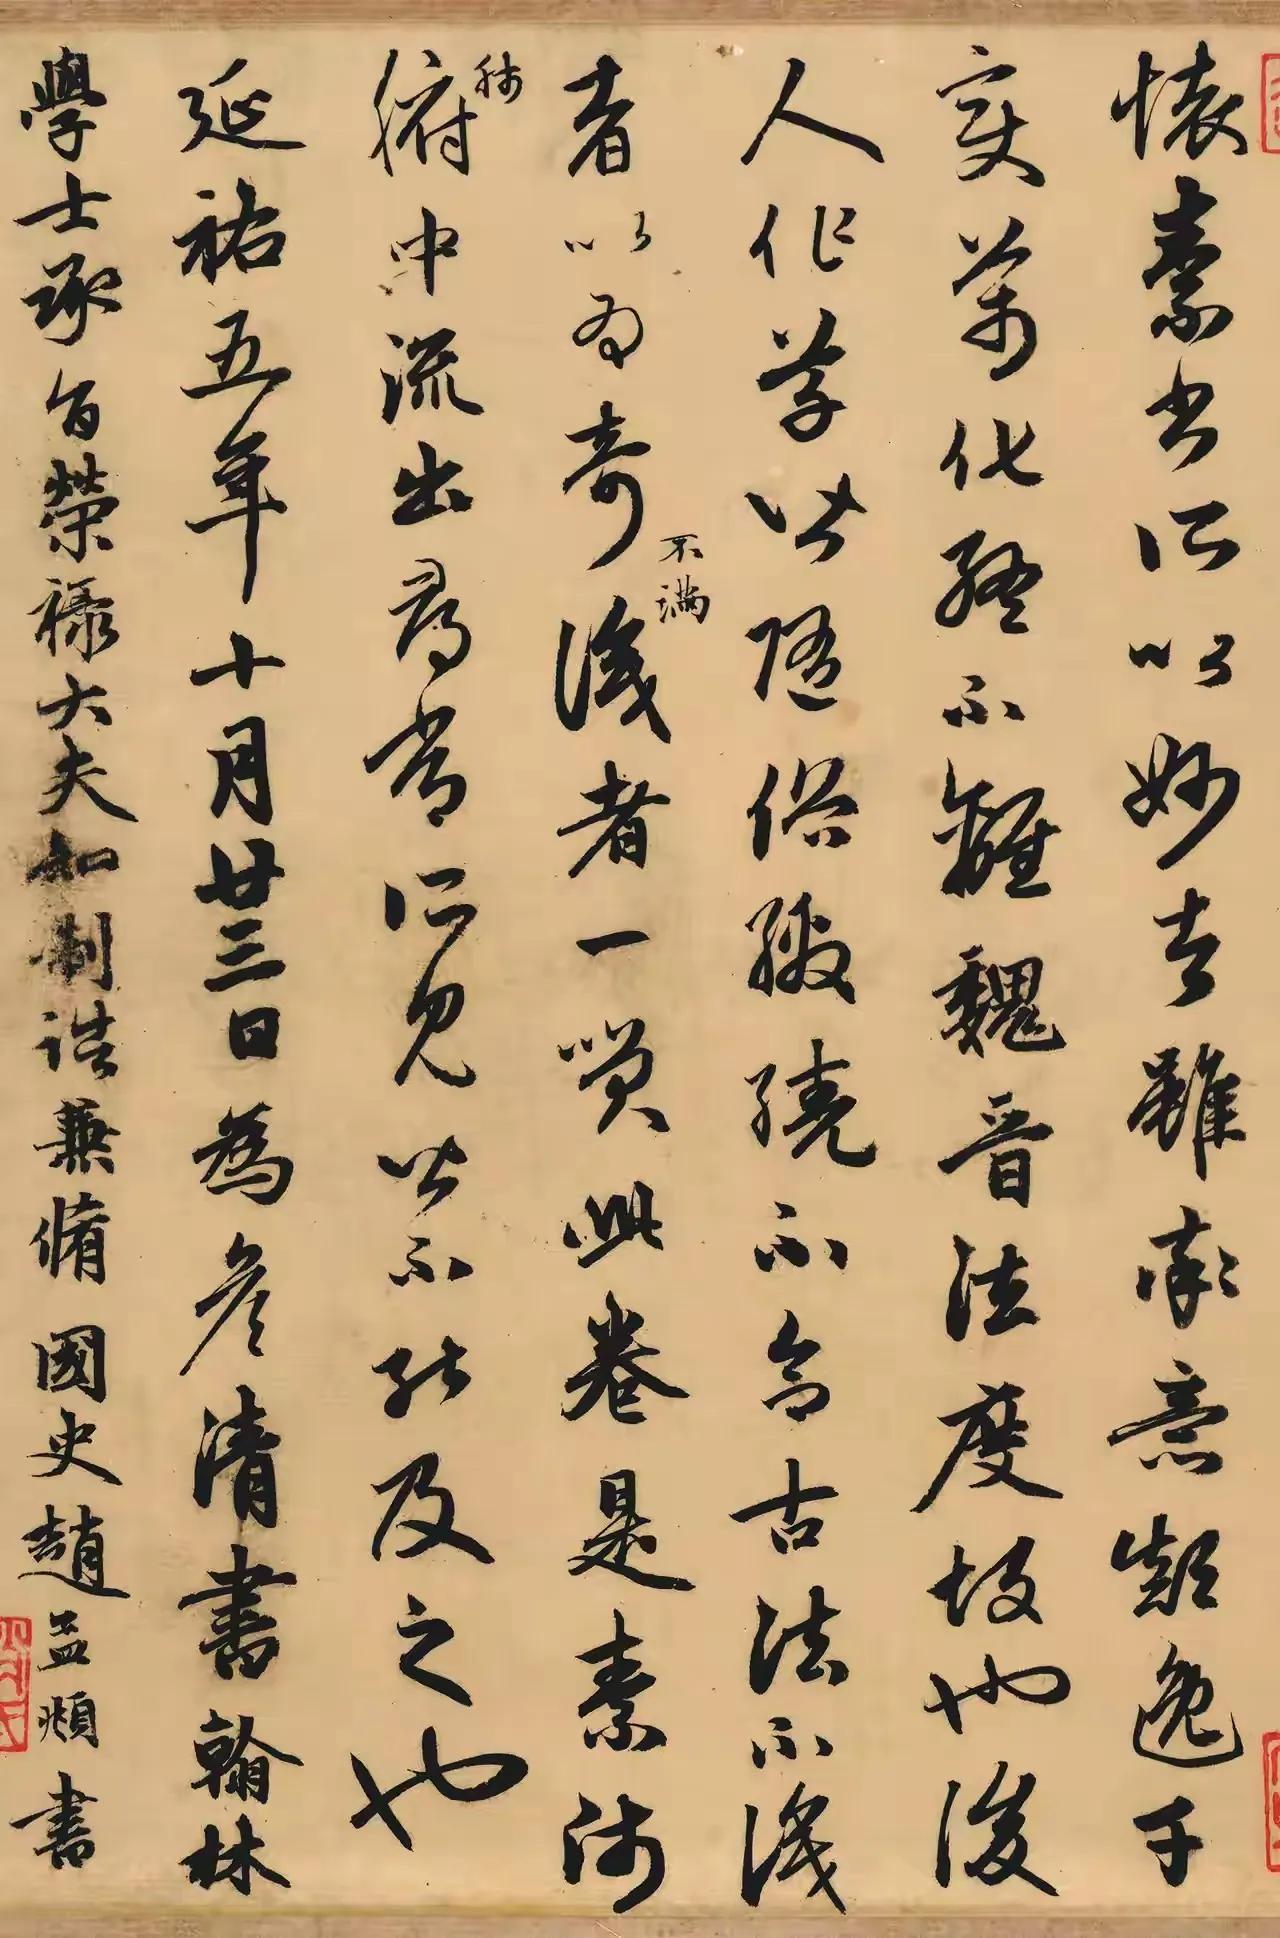 懷素書所以妙者雖率意顛逸千
變萬化終不離魏晉法度故也後
人作草皆隨俗繳繞不合古法不識
者以為奇不滿識者一咲此卷是素師
肺腑中流出尋常所見皆不能及之也
延祐五年十月廿三日為彦清書翰林
學士承旨榮祿大夫知制誥兼脩國史趙孟頫書